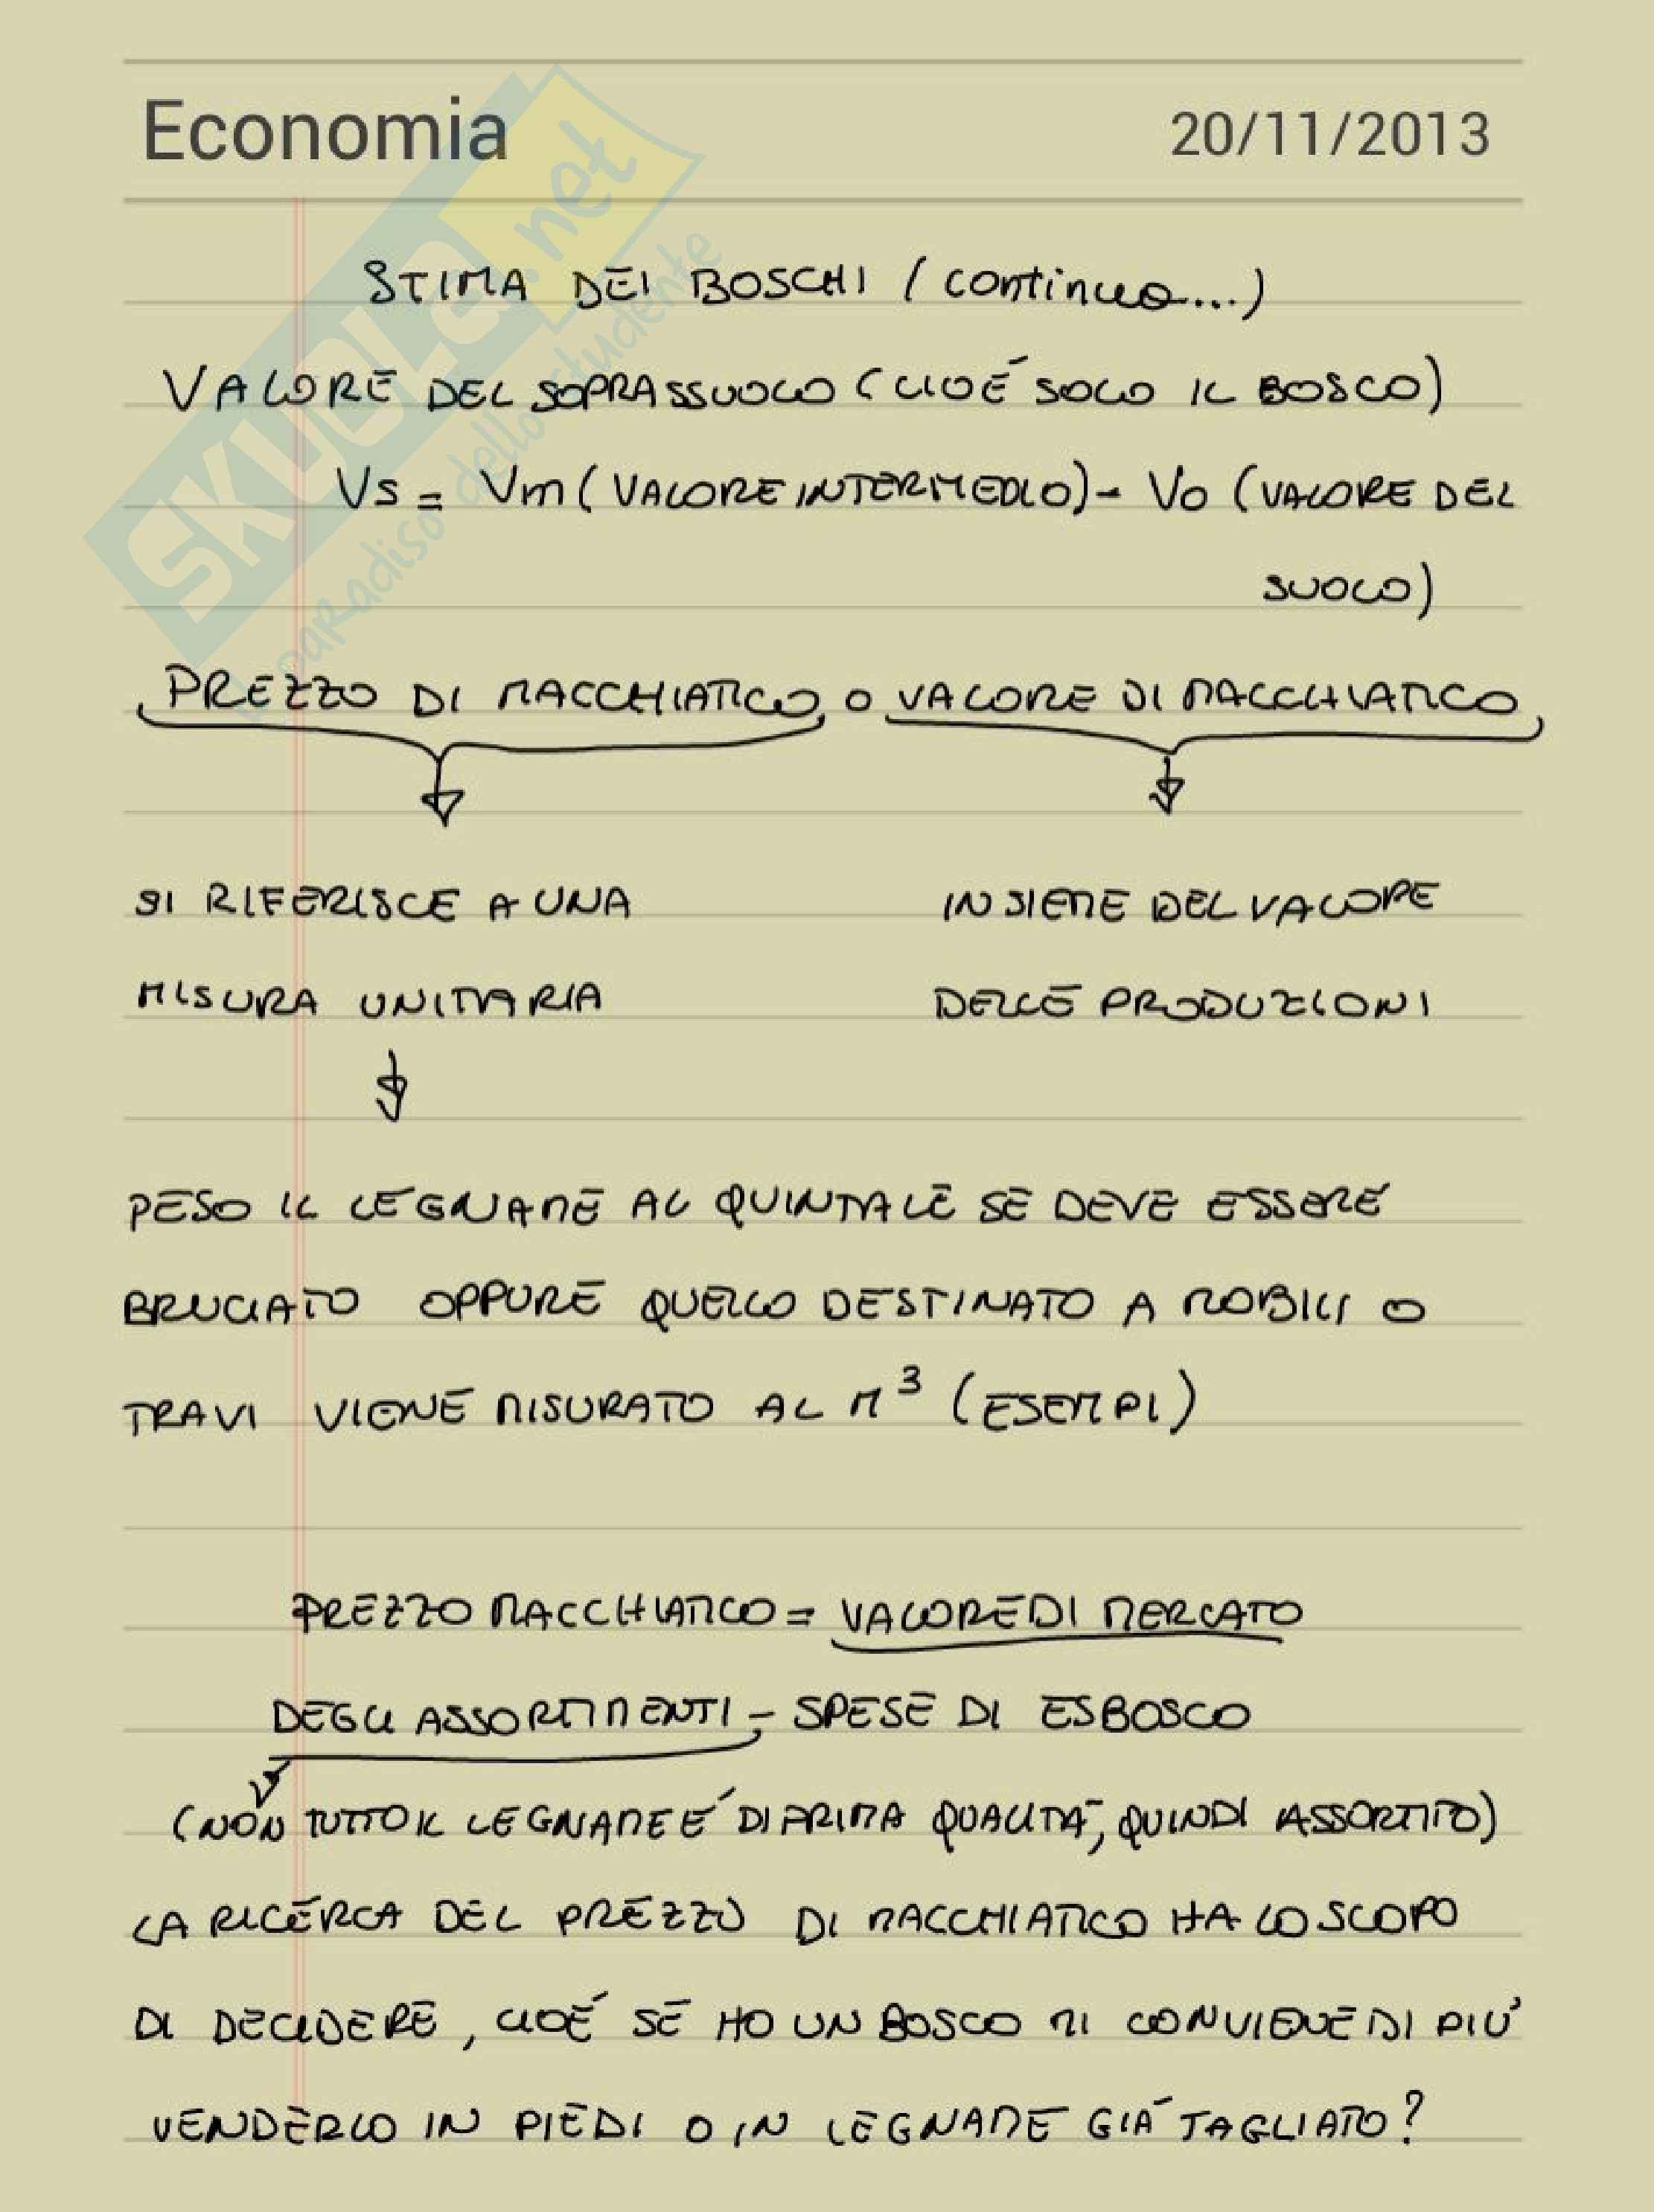 Economia 20/11/2013
SKUOLA.net
paradiso dello studente
STIMA DEI BOSCHI (continua...)
VALORE DEL SOPRASSUOLO (CIOÉ SOLO IL BOSCO)
Vs = Vm (VALORE INTERMEDIO) - Vo (VALORE DEL
SUOLO)
PREZZO DI MACCHIATICO O VALORE DI MACCHIATICO
SI RIFERISCE A UNA INSIEME DEL VALORE
MISURA UNITARIA DELLE PRODUZIONI
PESO IL LEGNAME AL QUINTALE SE DEVE ESSERE
BRUCIATO OPPURE QUELLO DESTINATO A MOBILI O
TRAVI VIENE MISURATO AL M³ (ESEMPI)
PREZZO MACCHIATICO = VALORE DI MERCATO
DEGLI ASSORTIMENTI - SPESE DI ESBOSCO
(NON TUTTO IL LEGNAME É DI PRIMA QUALITÀ, QUINDI ASSORTITO)
LA RICERCA DEL PREZZO DI MACCHIATICO HA LO SCOPO
DI DECIDERE, CIOÉ SE HO UN BOSCO MI CONVIENE DI PIÙ
VENDERLO IN PIEDI O IN LEGNAME GIÁ TAGLIATO?